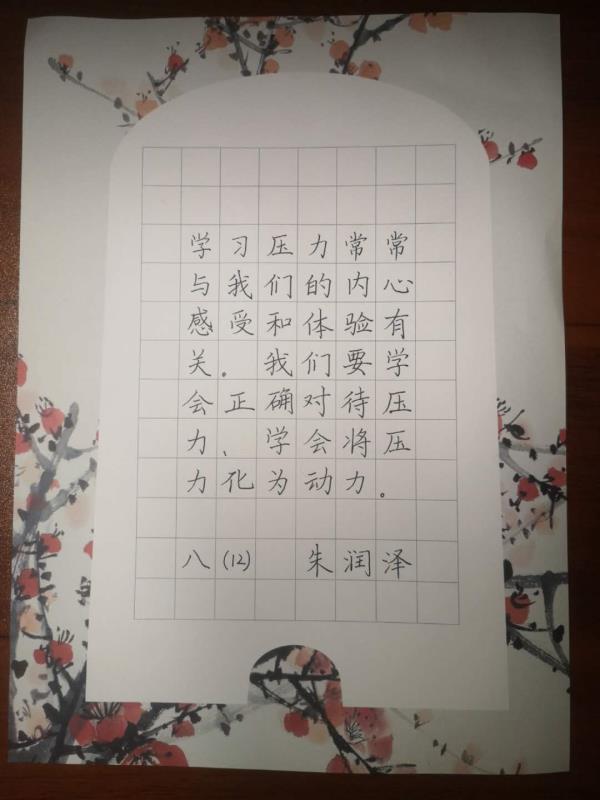 学习压力常常
与我们的内心
感受和体验有
关。我们要学
会正确对待压
力、学会将压
力化为动力。
八(12) 朱润泽